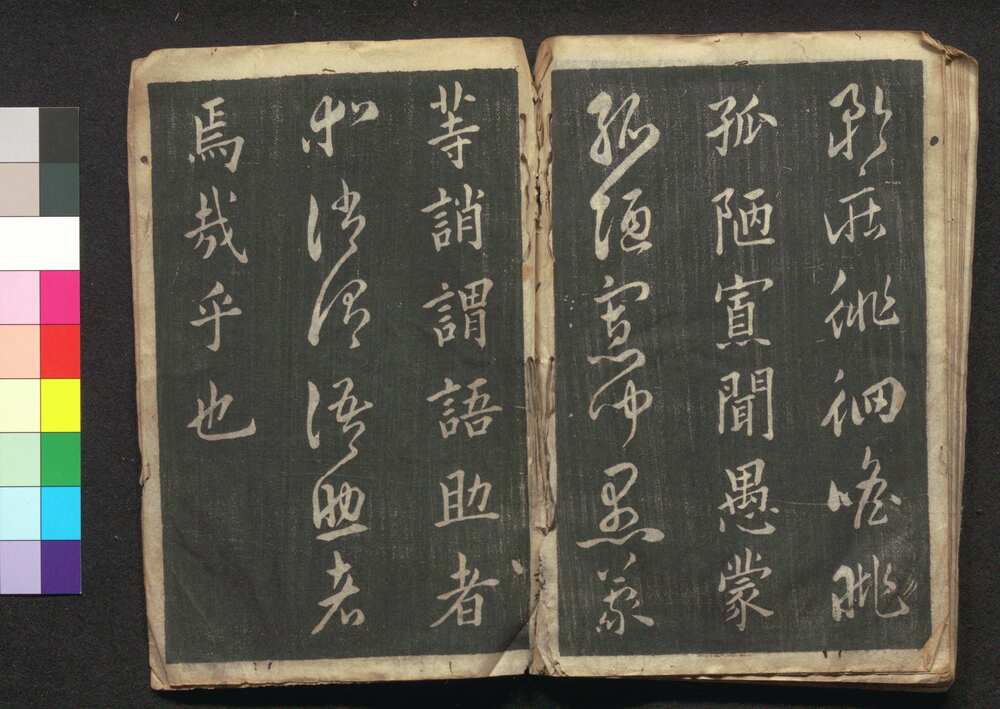 矜莊徘徊瞻眺
孤陋寡聞愚蒙
孤陋寡聞愚蒙
等誚謂語助者
等誚謂語助者
焉哉乎也